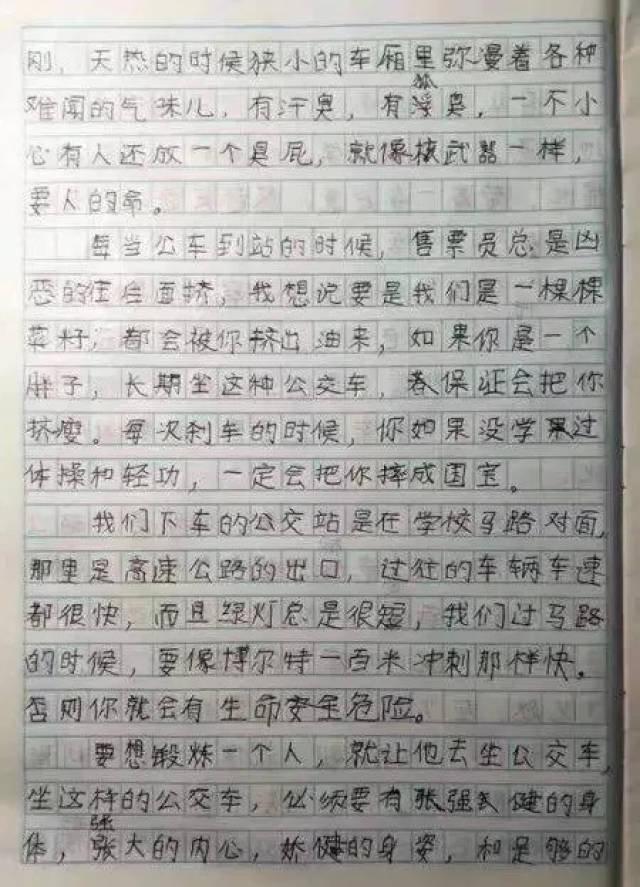 刚，天热的时候狭小的车厢里弥漫着各种
难闻的气味儿，有汗臭，有狐臭，一不小
心有人还放一个臭屁，就像核武器一样，
要人的命。
每当公车到站的时候，售票员总是凶
恶的往后面挤，我想说要是我们是一棵棵
菜籽，都会被你挤出油来，如果你是一个
胖子，长期坐这种公交车，保证会把你
挤瘦。每次刹车的时候，你如果没学过
体操和轻功，一定会把你摔成国宝。
我们下车的公交站是在学校马路对面，
那里是高速公路的出口，过往的车辆车速
都很快，而且绿灯总是很短，我们过马路
的时候，要像博尔特一百米冲刺那样快。
否则你就会有生命安全危险。
要想锻炼一个人，就让他去坐公交车，
坐这样的公交车，必须要有强健的身
体，张大的内心，娇健的身姿，和足够的